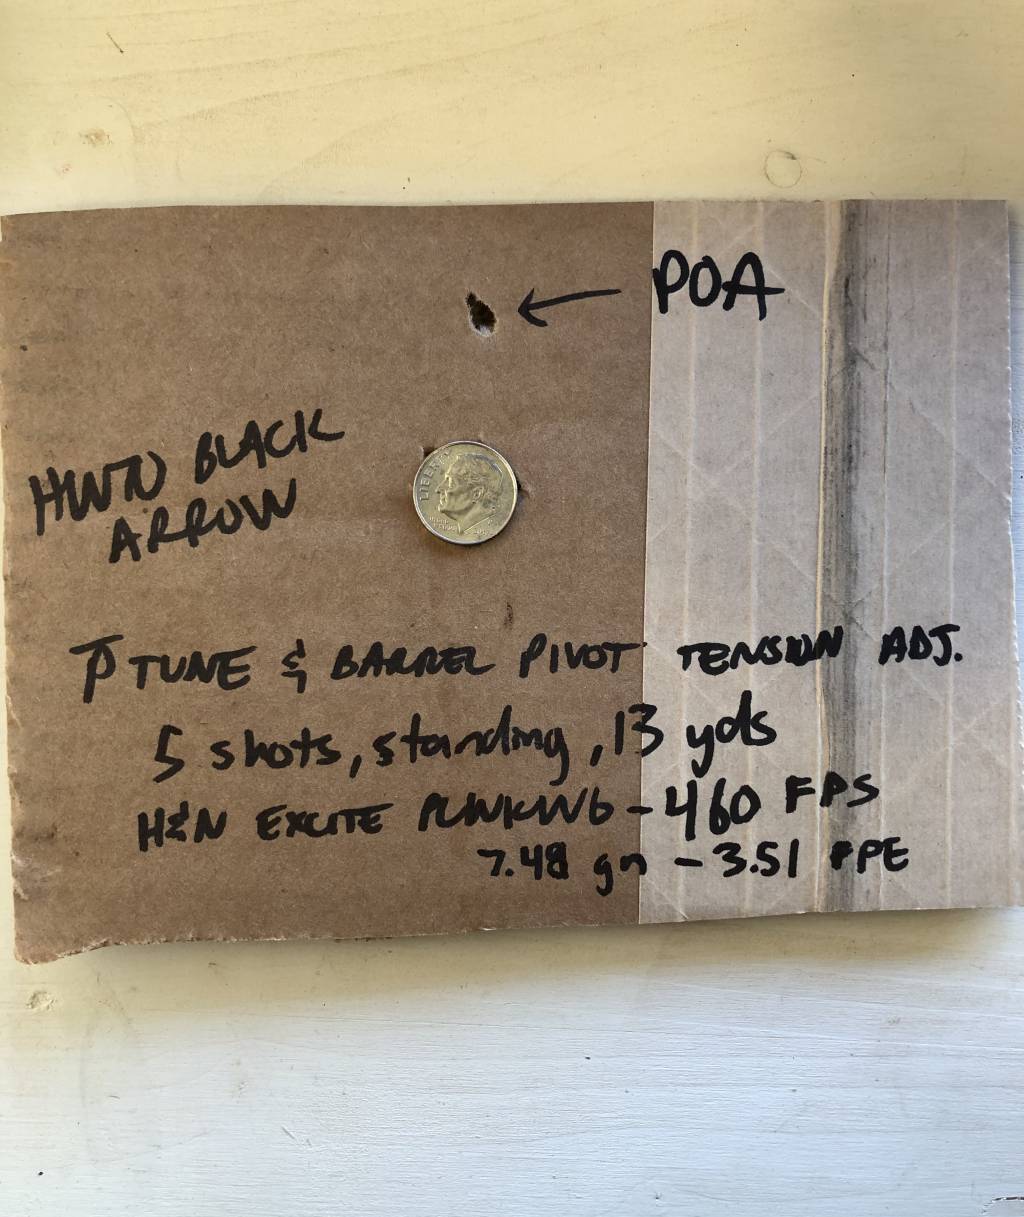 POA
HWN BLACK
ARROW
LIBERTY
P TUNE & BARREL PIVOT TENSION ADJ.
5 shots, standing, 13 yds
H&N EXCITE PLINKING - 460 FPS
7.48 gn - 3.51 FPE